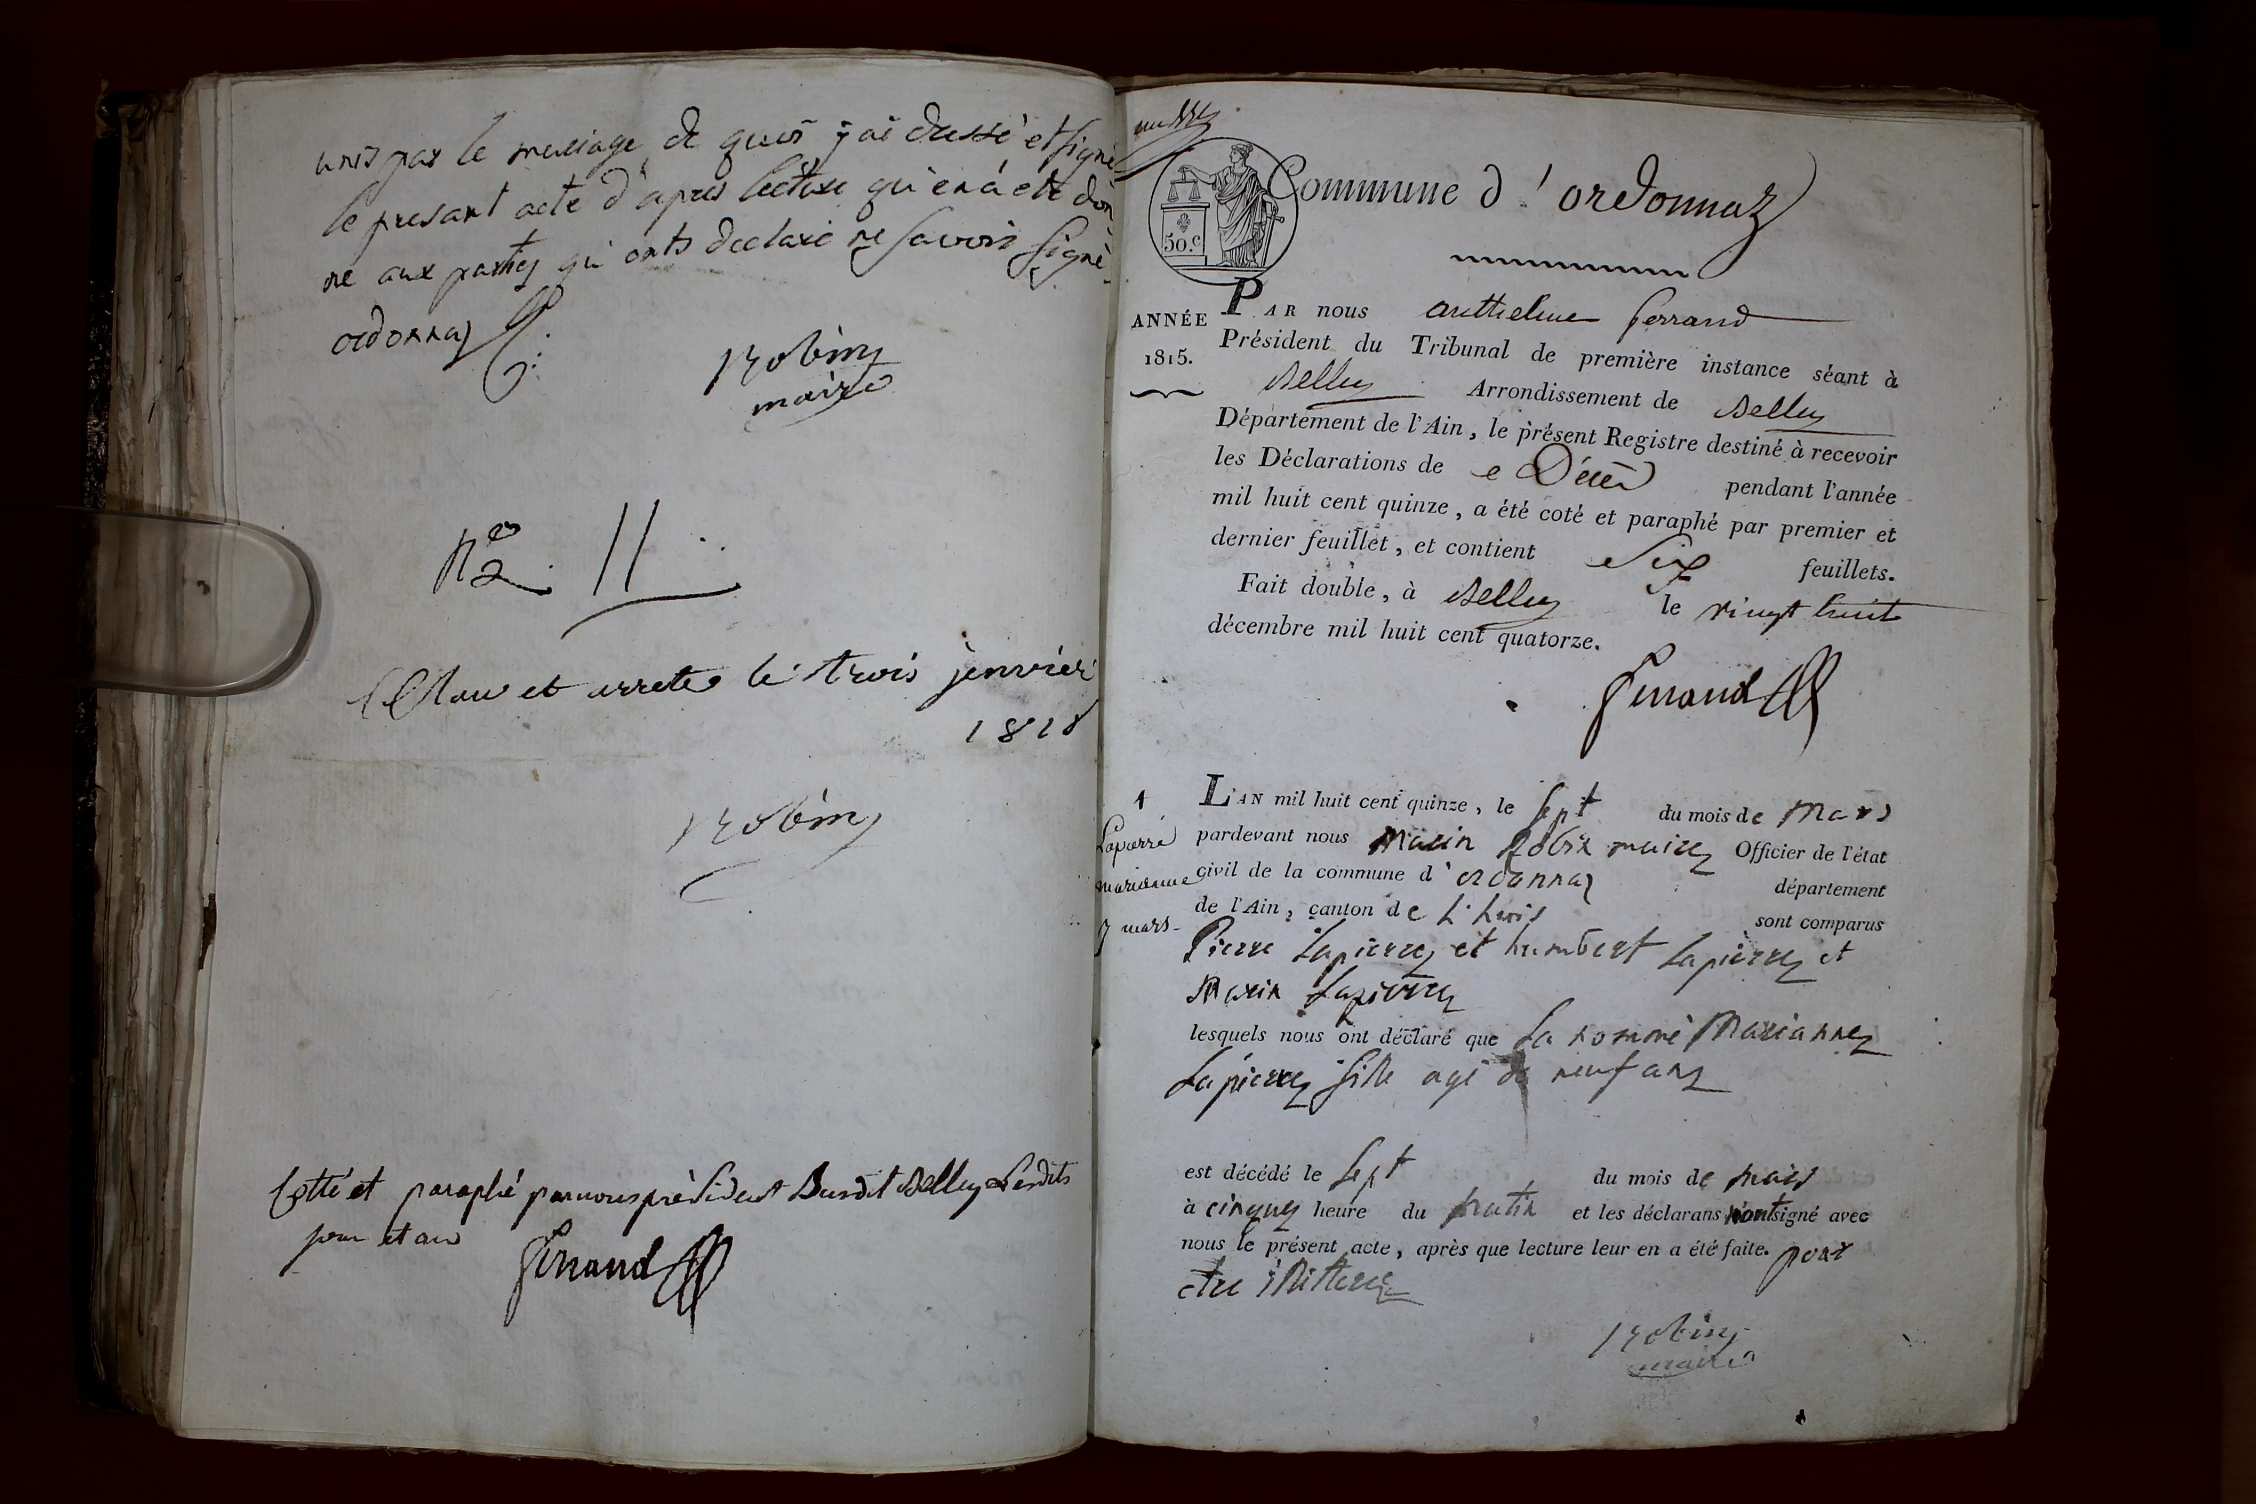 unis par le mariage de quoi j'ai dressé et signé
le presant acte d'apres lecture qui en a été don
né aux parties qui onts declaré ne savoir signé
ordonnaz
Robin
maire
No 11
Clau et arreté le trois janvier
1818
Robin
Cotté et paraphé par nous président Susdit Belley Lesdits
jour et an
Ferrand
Commune d'ordonnaz
50.c
ANNÉE
1815.
PAR nous anthelme ferrand
Président du Tribunal de première instance séant à
Belley Arrondissement de Belley
Département de l'Ain, le présent Registre destiné à recevoir
les Déclarations de Décès pendant l'année
mil huit cent quinze, a été coté et paraphé par premier et
dernier feuillet, et contient Six feuillets.
Fait double, à Belley le vingt huit
décembre mil huit cent quatorze.
Ferrand
1
Lapierre
marianne
7 mars
L'AN mil huit cent quinze, le sept du mois de mars
pardevant nous Marin Robin maire Officier de l'état
civil de la commune d'ordonnaz département
de l'Ain, canton de L'huis sont comparus
Pierre Lapierre et humbert Lapierre et
Marin Lapierre
lesquels nous ont déclaré que La nommé Marianne
Lapierre fille agé de neuf ans
est décédé le sept du mois de mars
à cinque heure du matin et les déclarans n'ont signé avec
nous le présent acte, après que lecture leur en a été faite. pour
etre illitere
Robin
maire